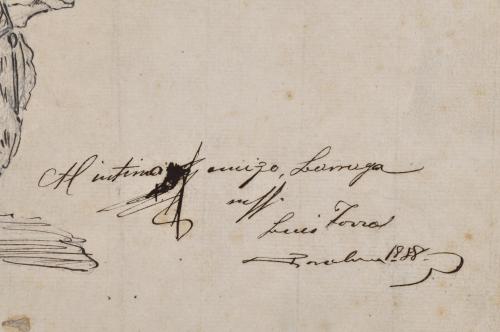 Al intimo amigo, Larruga
Luis Torra
Barcelona 1888.